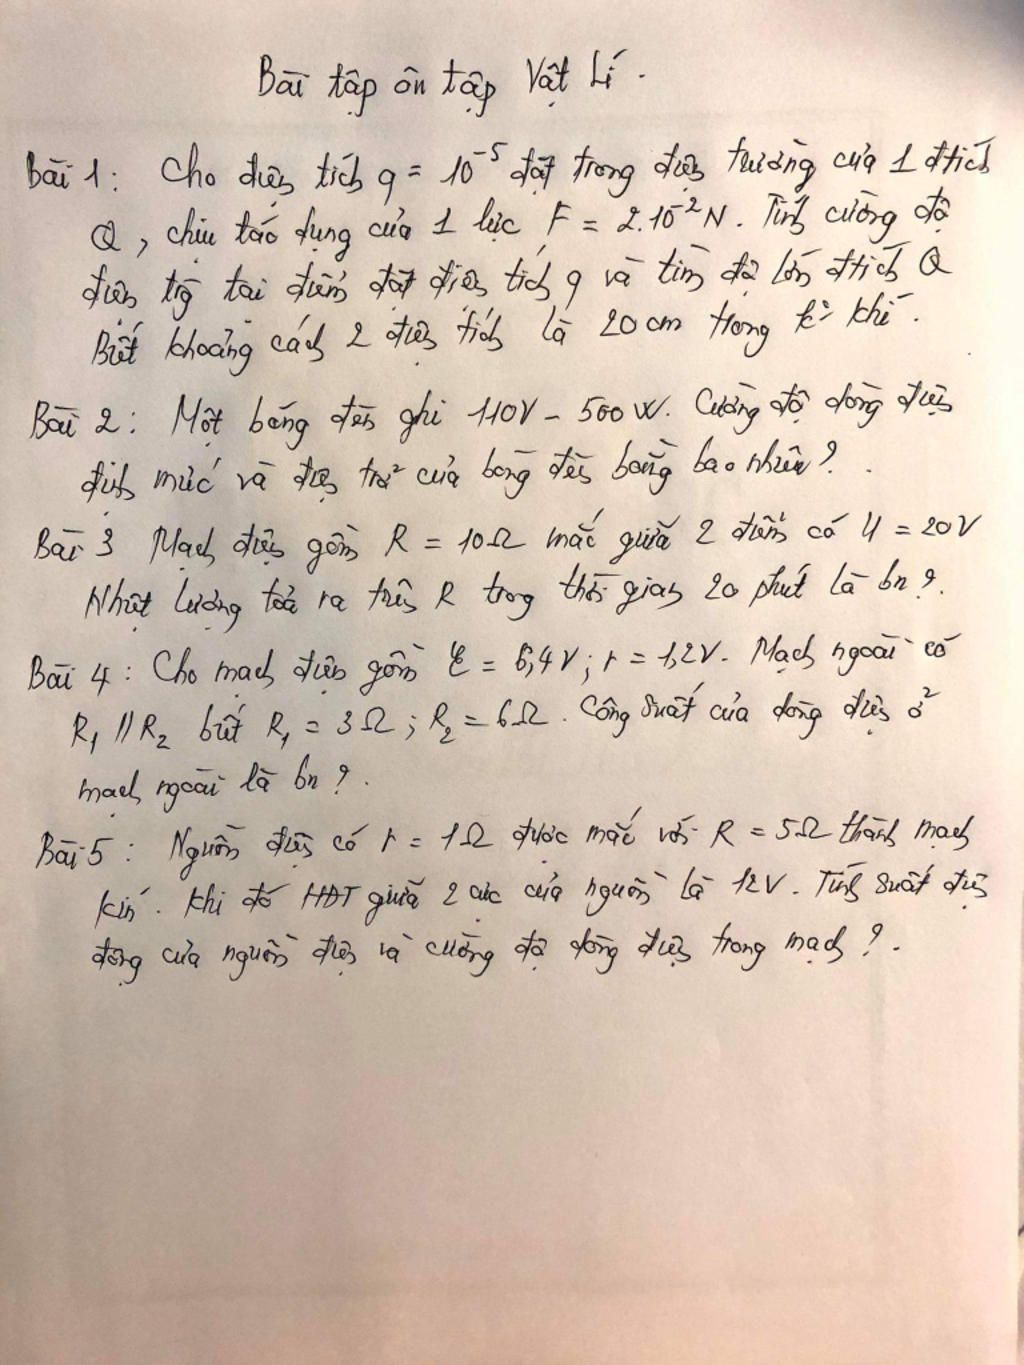 Bài tập ôn tập Vật Lí.
Bài 1: Cho điện tích q = 10⁻⁵ đặt trong điện trường của 1 đtích
Q, chịu tác dụng của 1 lực F = 2.10⁻² N. Tính cường độ
điện trg tại điểm đặt điện tích q và tìm độ lớn đtích Q
Biết khoảng cách 2 điện tích là 20 cm trong k° khí.
Bài 2: Một bóng đèn ghi 110V - 500 W. Cường độ dòng điện
định mức và điện trở của bóng đèn bằng bao nhiêu?.
Bài 3 Mạch điện gồm R = 10Ω mắc giữa 2 điểm có U = 20V
Nhiệt lượng toả ra trên R trong thời gian 20 phút là bn?.
Bài 4: Cho mạch điện gồm ℰ = 6,4V; r = 1,2V. Mạch ngoài có
R₁ // R₂ biết R₁ = 3Ω; R₂ = 6Ω. Công suất của dòng điện ở
mạch ngoài là bn?.
Bài 5: Nguồn điện có r = 1Ω được mắc với R = 5Ω thành mạch
kín. Khi đó HĐT giữa 2 cực của nguồn là 12V. Tính suất điện
động của nguồn điện và cường độ dòng điện trong mạch?.